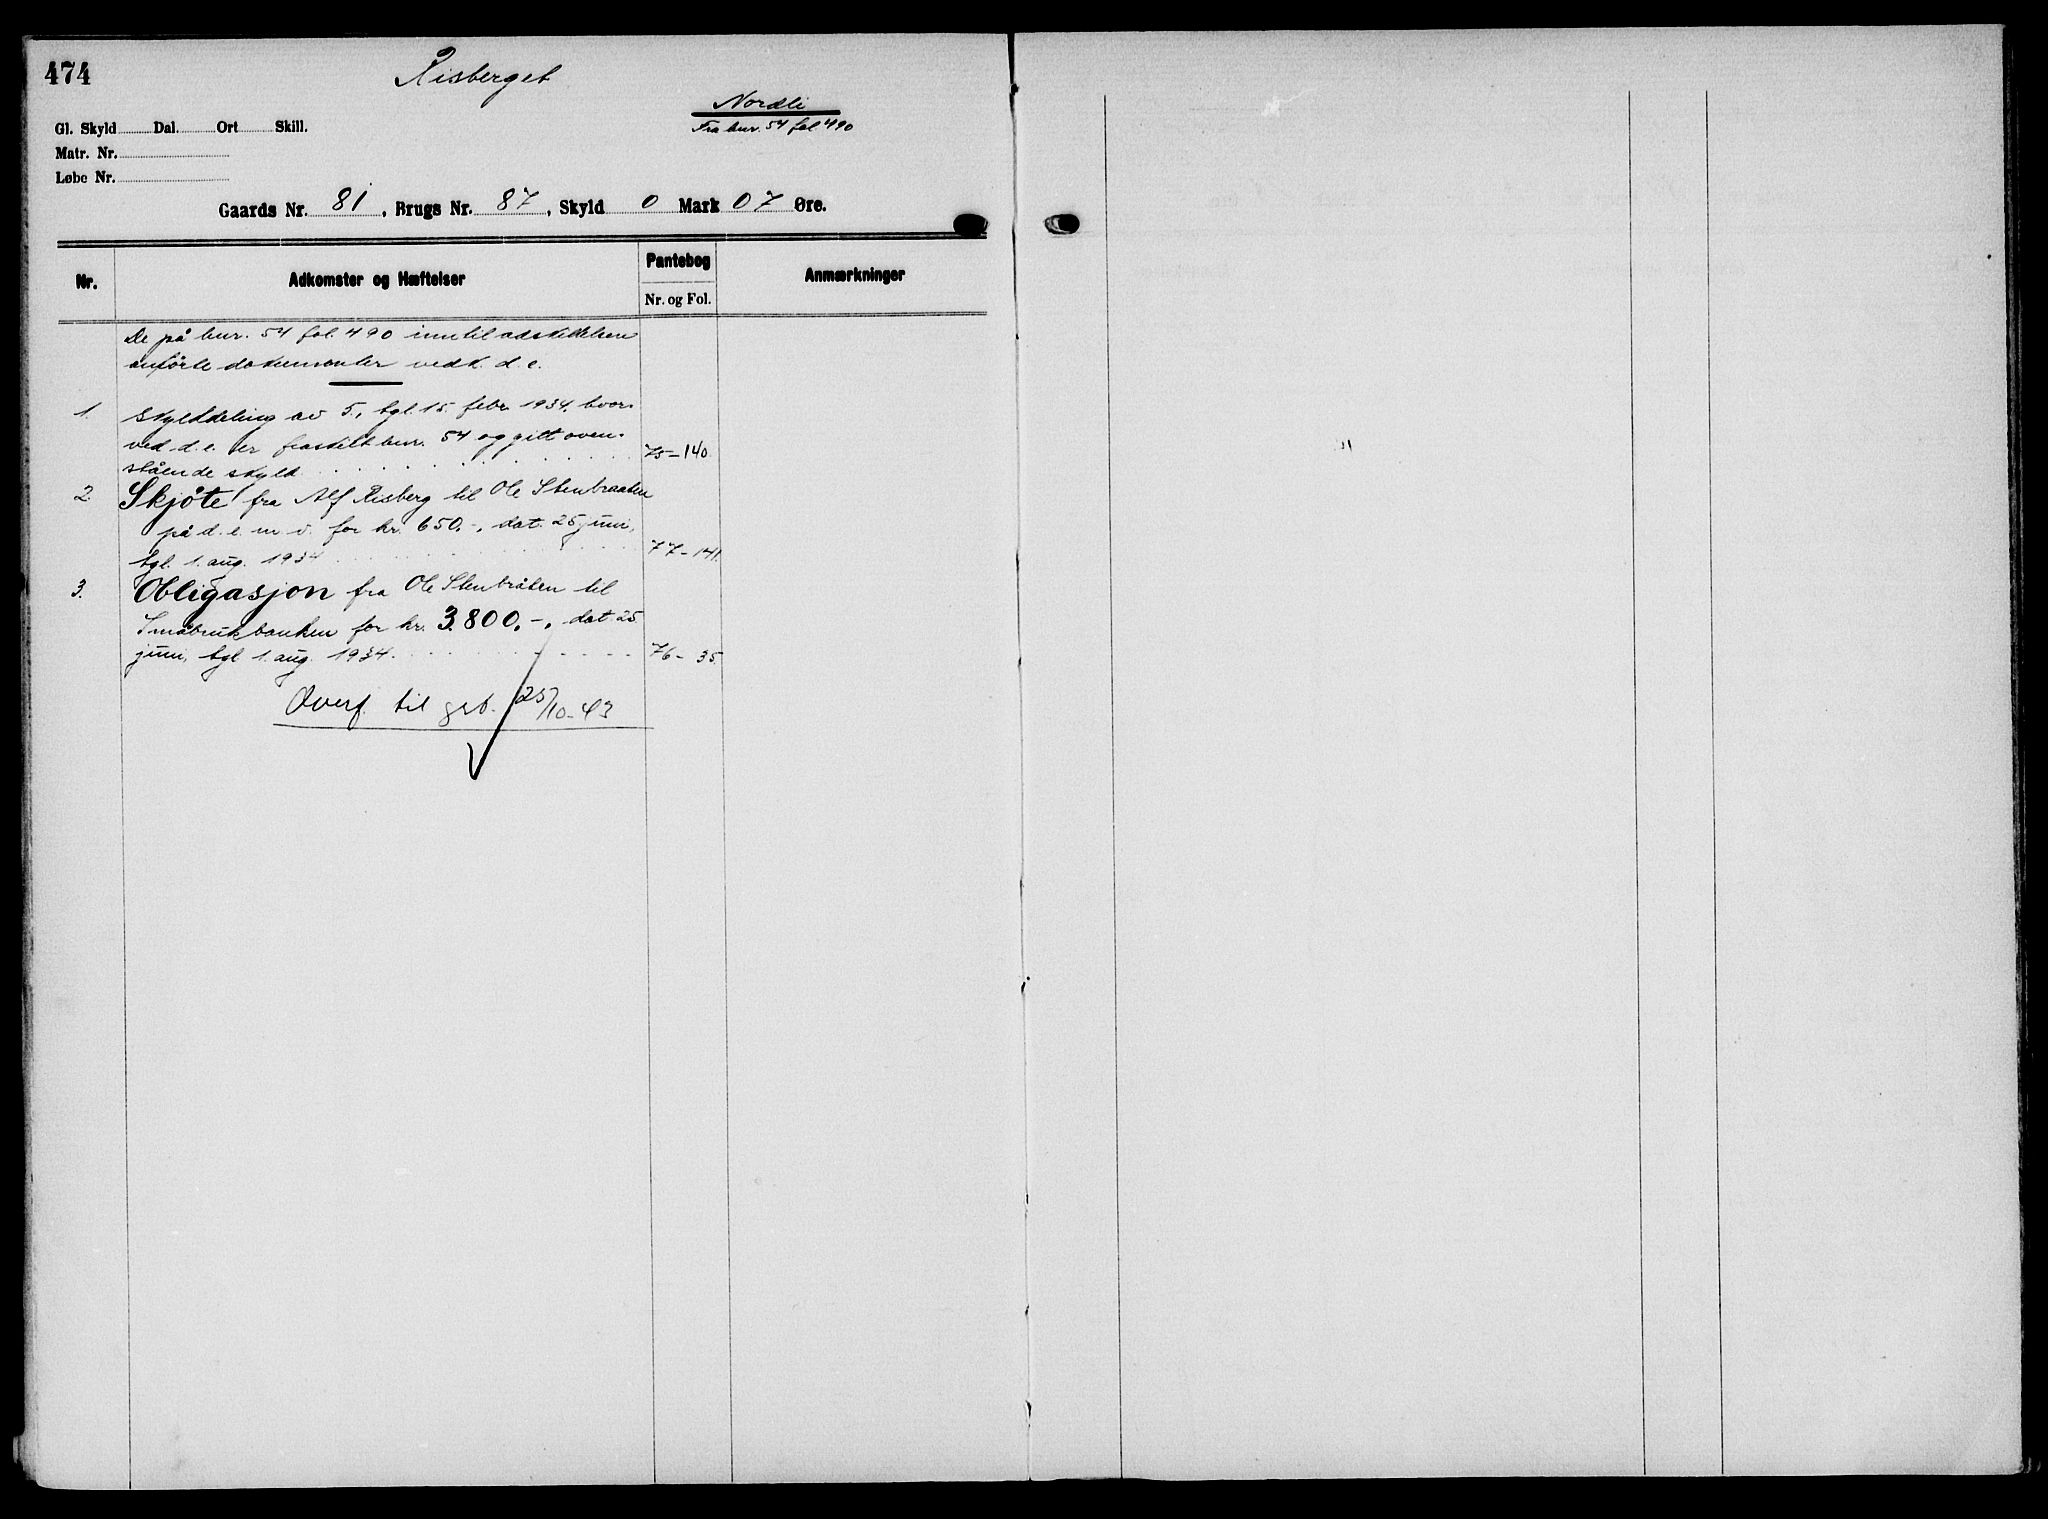 474
Risberget
Nordli
Fra bnr. 54 fol 490
Gl. Skyld Dal. Ort Skill.
Matr. Nr.
Løbe Nr.
Gaards Nr. 81, Brugs Nr. 87, Skyld 0 Mark 07 Øre.
Nr. Adkomster og Hæftelser Pantebog Anmærkninger
Nr. og Fol.
De på bnr. 54 fol. 490 inntil adskillelsen
anførte dokumenter vedk. d. e.
1. Skylddeling av 5., tgl. 15. febr. 1934, hvor-
ved d. e. er fraskilt bnr. 54 og gitt oven-
stående skyld. 75-140.
2. Skjøte fra Alf Risberg til Ole Stenbraaten
på d. e. m. v. for kr. 650.-, dat. 25 juni,
tgl. 1. aug. 1934 77-141.
3. Obligasjon fra Ole Stenbråten til
Småbrukbanken for kr. 3.800.-, dat 25
juni, tgl 1. aug. 1934. 76-35.
Overf. til grb. 25/10-43